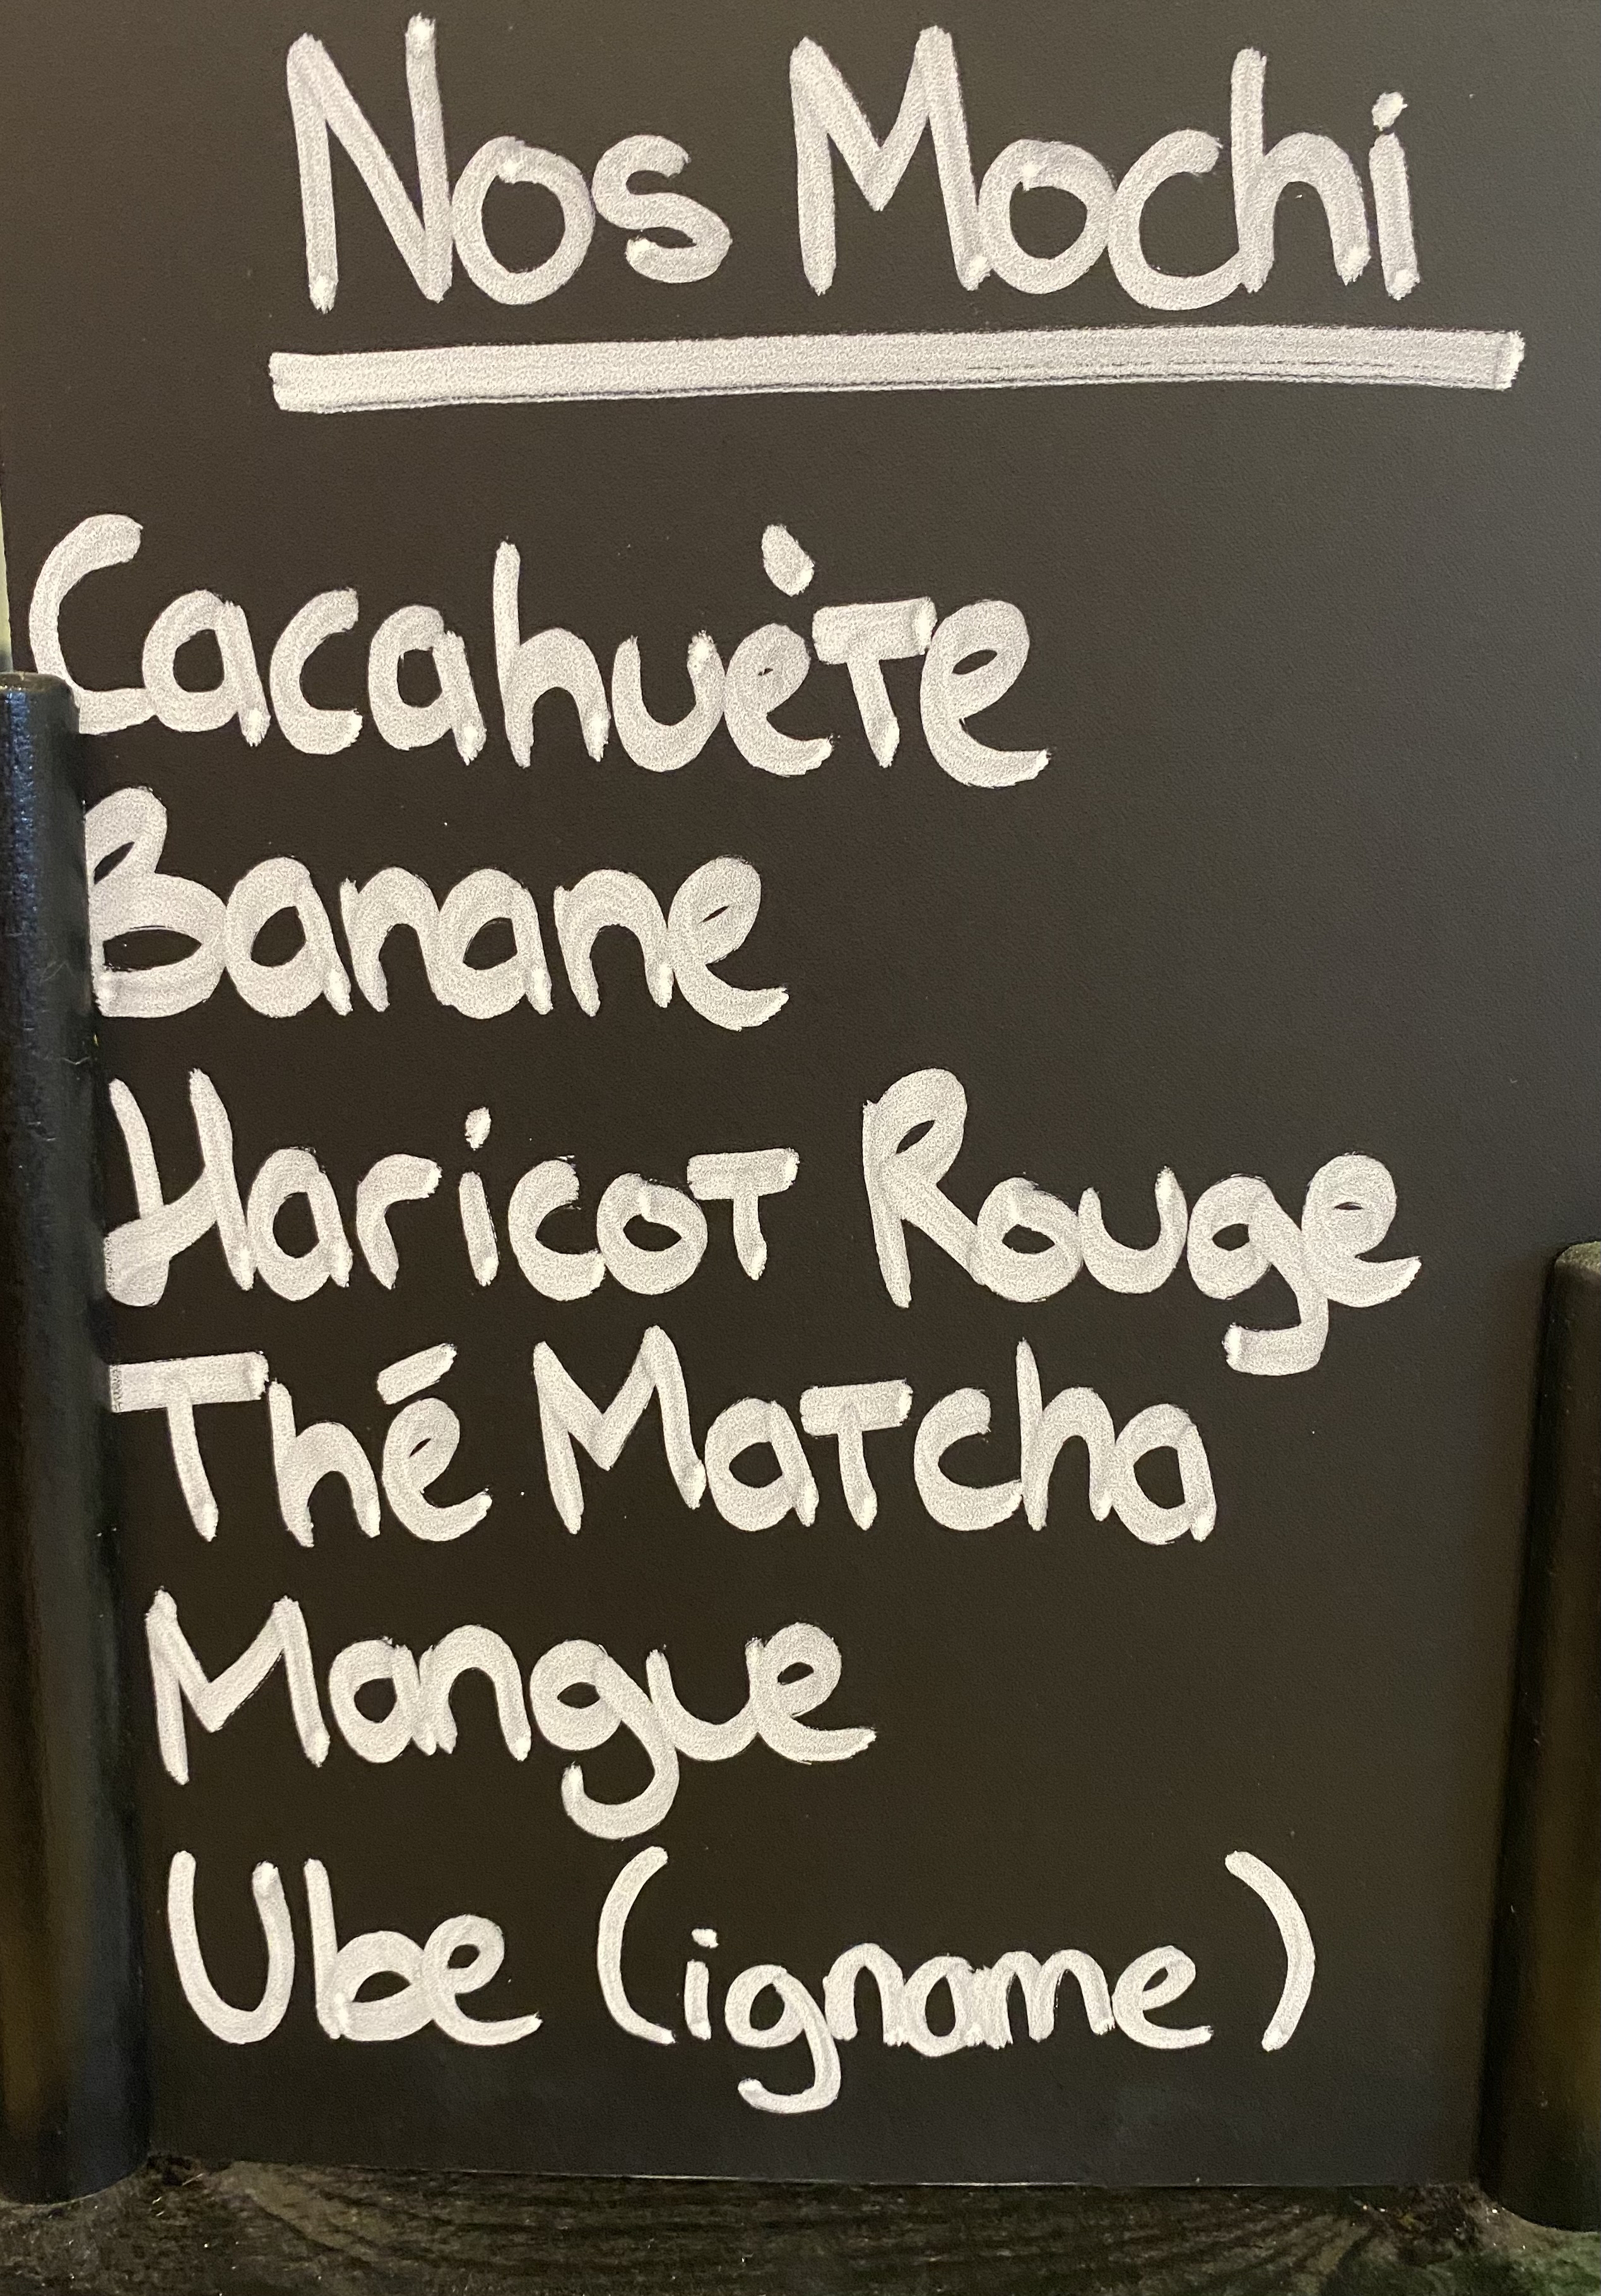 Nos Mochi
Cacahuète
Banane
Haricot Rouge
Thé Matcha
Mangue
Ube (igname)